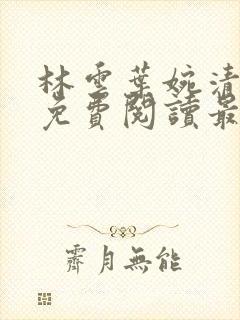 林雲葉婉清
免費閱讀最
霽月無能